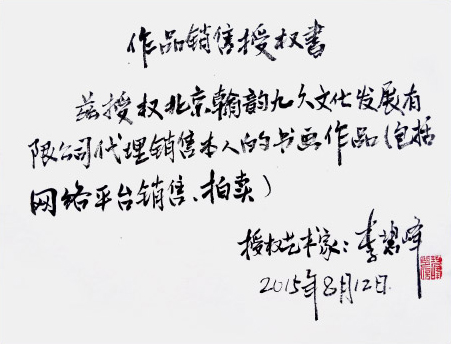 作品销售授权书
兹授权北京翰韵九久文化发展有
限公司代理销售本人的书画作品(包括
网络平台销售、拍卖)
授权艺术家:李碧峰
2015年8月12日